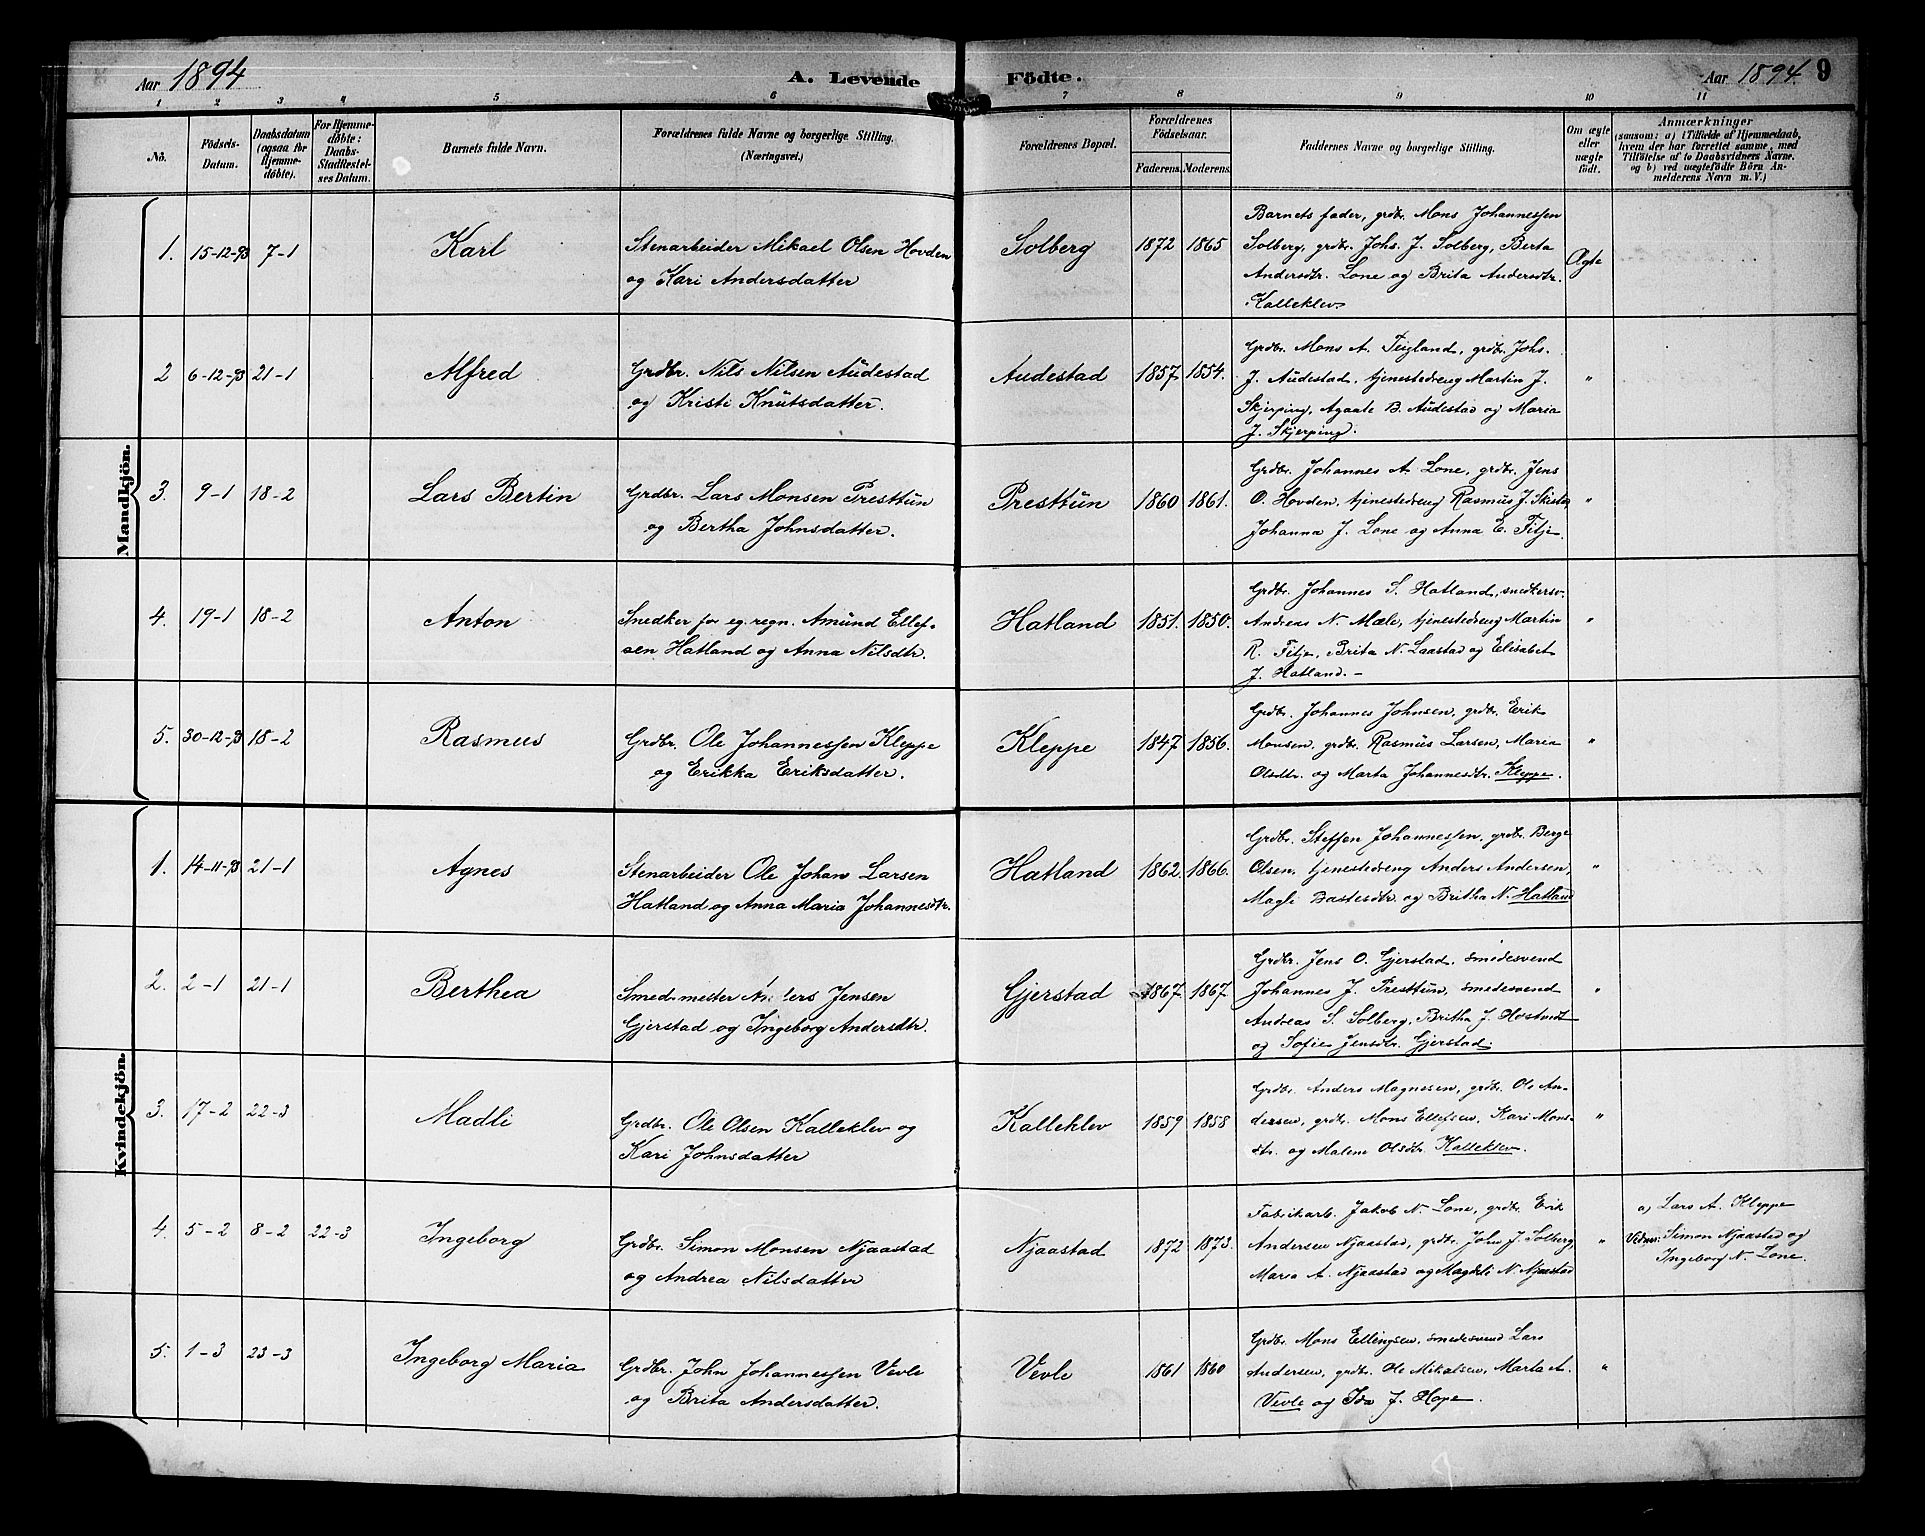 Aar 1894
A. Levende
Födte.
Aar 1894. 9
1 2 3 4 5 6 7 8 9 10 11
No.
Födsels-
Datum.
Daabsdatum
(ogsaa for
Hjemme-
døbte).
For Hjemme-
døbte:
Daabs-
Stadfæstel-
ses Datum.
Barnets fulde Navn.
Forældrenes fulde Navne og borgerlige Stilling.
(Næringsvei.)
Forældrenes Bopæl.
Forældrenes
Födselsaar.
Faderens. Moderens.
Faddernes Navne og borgerlige Stilling.
Om ægte
eller
uægte
födt.
Anmærkninger
(saasom: a) i Tilfælde af Hjemmedaab,
hvem der har forrettet samme, med
Tilföielse af to Daabsvidners Navne,
og b) ved uægtefödte Börn An-
melderens Navn m. V.)
Mandkjön.
1. 15-12-93 7-1
Karl
Stenarbeider Mikael Olsen Hovden
og Kari Andersdatter
Solberg 1872 1865
Barnets fader, grdbr. Mons Johannessen
Solberg, grdbr. Johs. J. Solberg, Berta
Andersdtr. Lone og Brita Andersdtr.
Kalleklev
Ægte
2 6-12-93 21-1
Alfred
Grdbr. Nils Nilsen Audestad
og Kristi Knutsdatter.
Audestad 1857 1854.
Grdbr. Mons A. Tugland, grdbr. Johs.
J. Audestad, tjenestedreng Martin J.
Skjerping, Agaate B. Audestad og Maria
J. Skjerping.
"
3. 9-1 18-2
Lars Bertin
Grdbr. Lars Monsen Presttun
og Bertha Johnsdatter.
Presttun 1860 1861.
Grdbr. Johannes A. Lone, grdbr. Jens
O. Hovden, tjenestedreng Rasmus J.
Johanna J. Lone og Anna E. Fitje.
"
4. 19-1 18-2
Anton
Snedker for eg. regn. Amund Ellef-
sen Hatland og Anna Nilsdtr.
Hatland 1851. 1850.
Grdbr. Johannes S. Hatland, snedkersv.
Andreas N. Mæle, tjenestedreng Martin
R. Fitje, Brita N. Laastad og Elisabet
J. Hatland. -
"
5. 30-12-93 18-2
Rasmus
Grdbr. Ole Johannessen Kleppe
og Erikka Eriksdatter.
Kleppe 1847 1856.
Grdbr. Johannes Johnsen, grdbr. Erik
Monsen, grdbr. Rasmus Larsen, Maria
Olsdtr. og Marta Johannesdtr. Kleppe.
"
Kvindekjön.
1. 14-11-93 21-1
Agnes
Stenarbeider Ole Johan Larsen
Hatland og Anna Maria Johannesdtr.
Hatland 1862. 1866.
Grdbr. Steffen Johannessen, grdbr. Berge
Olsen, tjenestedreng Anders Andersen,
Magli Bastesdtr. og Britha N. Hatland
"
2. 2-1 21-1
Berthea
Smedmester Anders Jensen
Gjerstad og Ingeborg Andersdtr.
Gjerstad 1867 1867
Grdbr. Jens O. Gjerstad, smedesvend
Johannes J. Presttun, smedesvend
Andreas S. Solberg, Britha J.
og Sofie Jensdtr. Gjerstad.
"
3. 17-2 22-3
Madli
Grdbr. Ole Olsen Kalleklev og
Kari Johnsdatter
Kalleklev 1859 1858
Grdbr. Anders Magnesen, grdbr. Ole An-
dersen, grdbr. Mons Ellefsen, Kari Mons-
dtr. og Malene Olsdtr. Kalleklev.
"
4. 5-2 8-2 22-3
Ingeborg
Grdbr. Simon Monsen Njaastad
og Andrea Nilsdatter
Njaastad 1872 1873.
Fabrikarb. Jakob N. Lone, grdbr. Erik
Andersen Njaastad, grdbr. John J. Solberg,
Maria A. Njaastad og Magdeli N. Njaastad
"
a) Lars A. Kleppe
Vidner: Simon Njaastad og
Ingeborg N. Lone.
5. 1-3 23-3
Ingeborg Maria
Grdbr. John Johannessen Vevle
og Brita Andersdatter.
Vevle 1861 1860
Grdbr. Mons Ellingsen, smedesvend Lars
Andersen, grdbr. Ole Mikalsen, Marta A.
Vevle og Ida J. Hope.
"